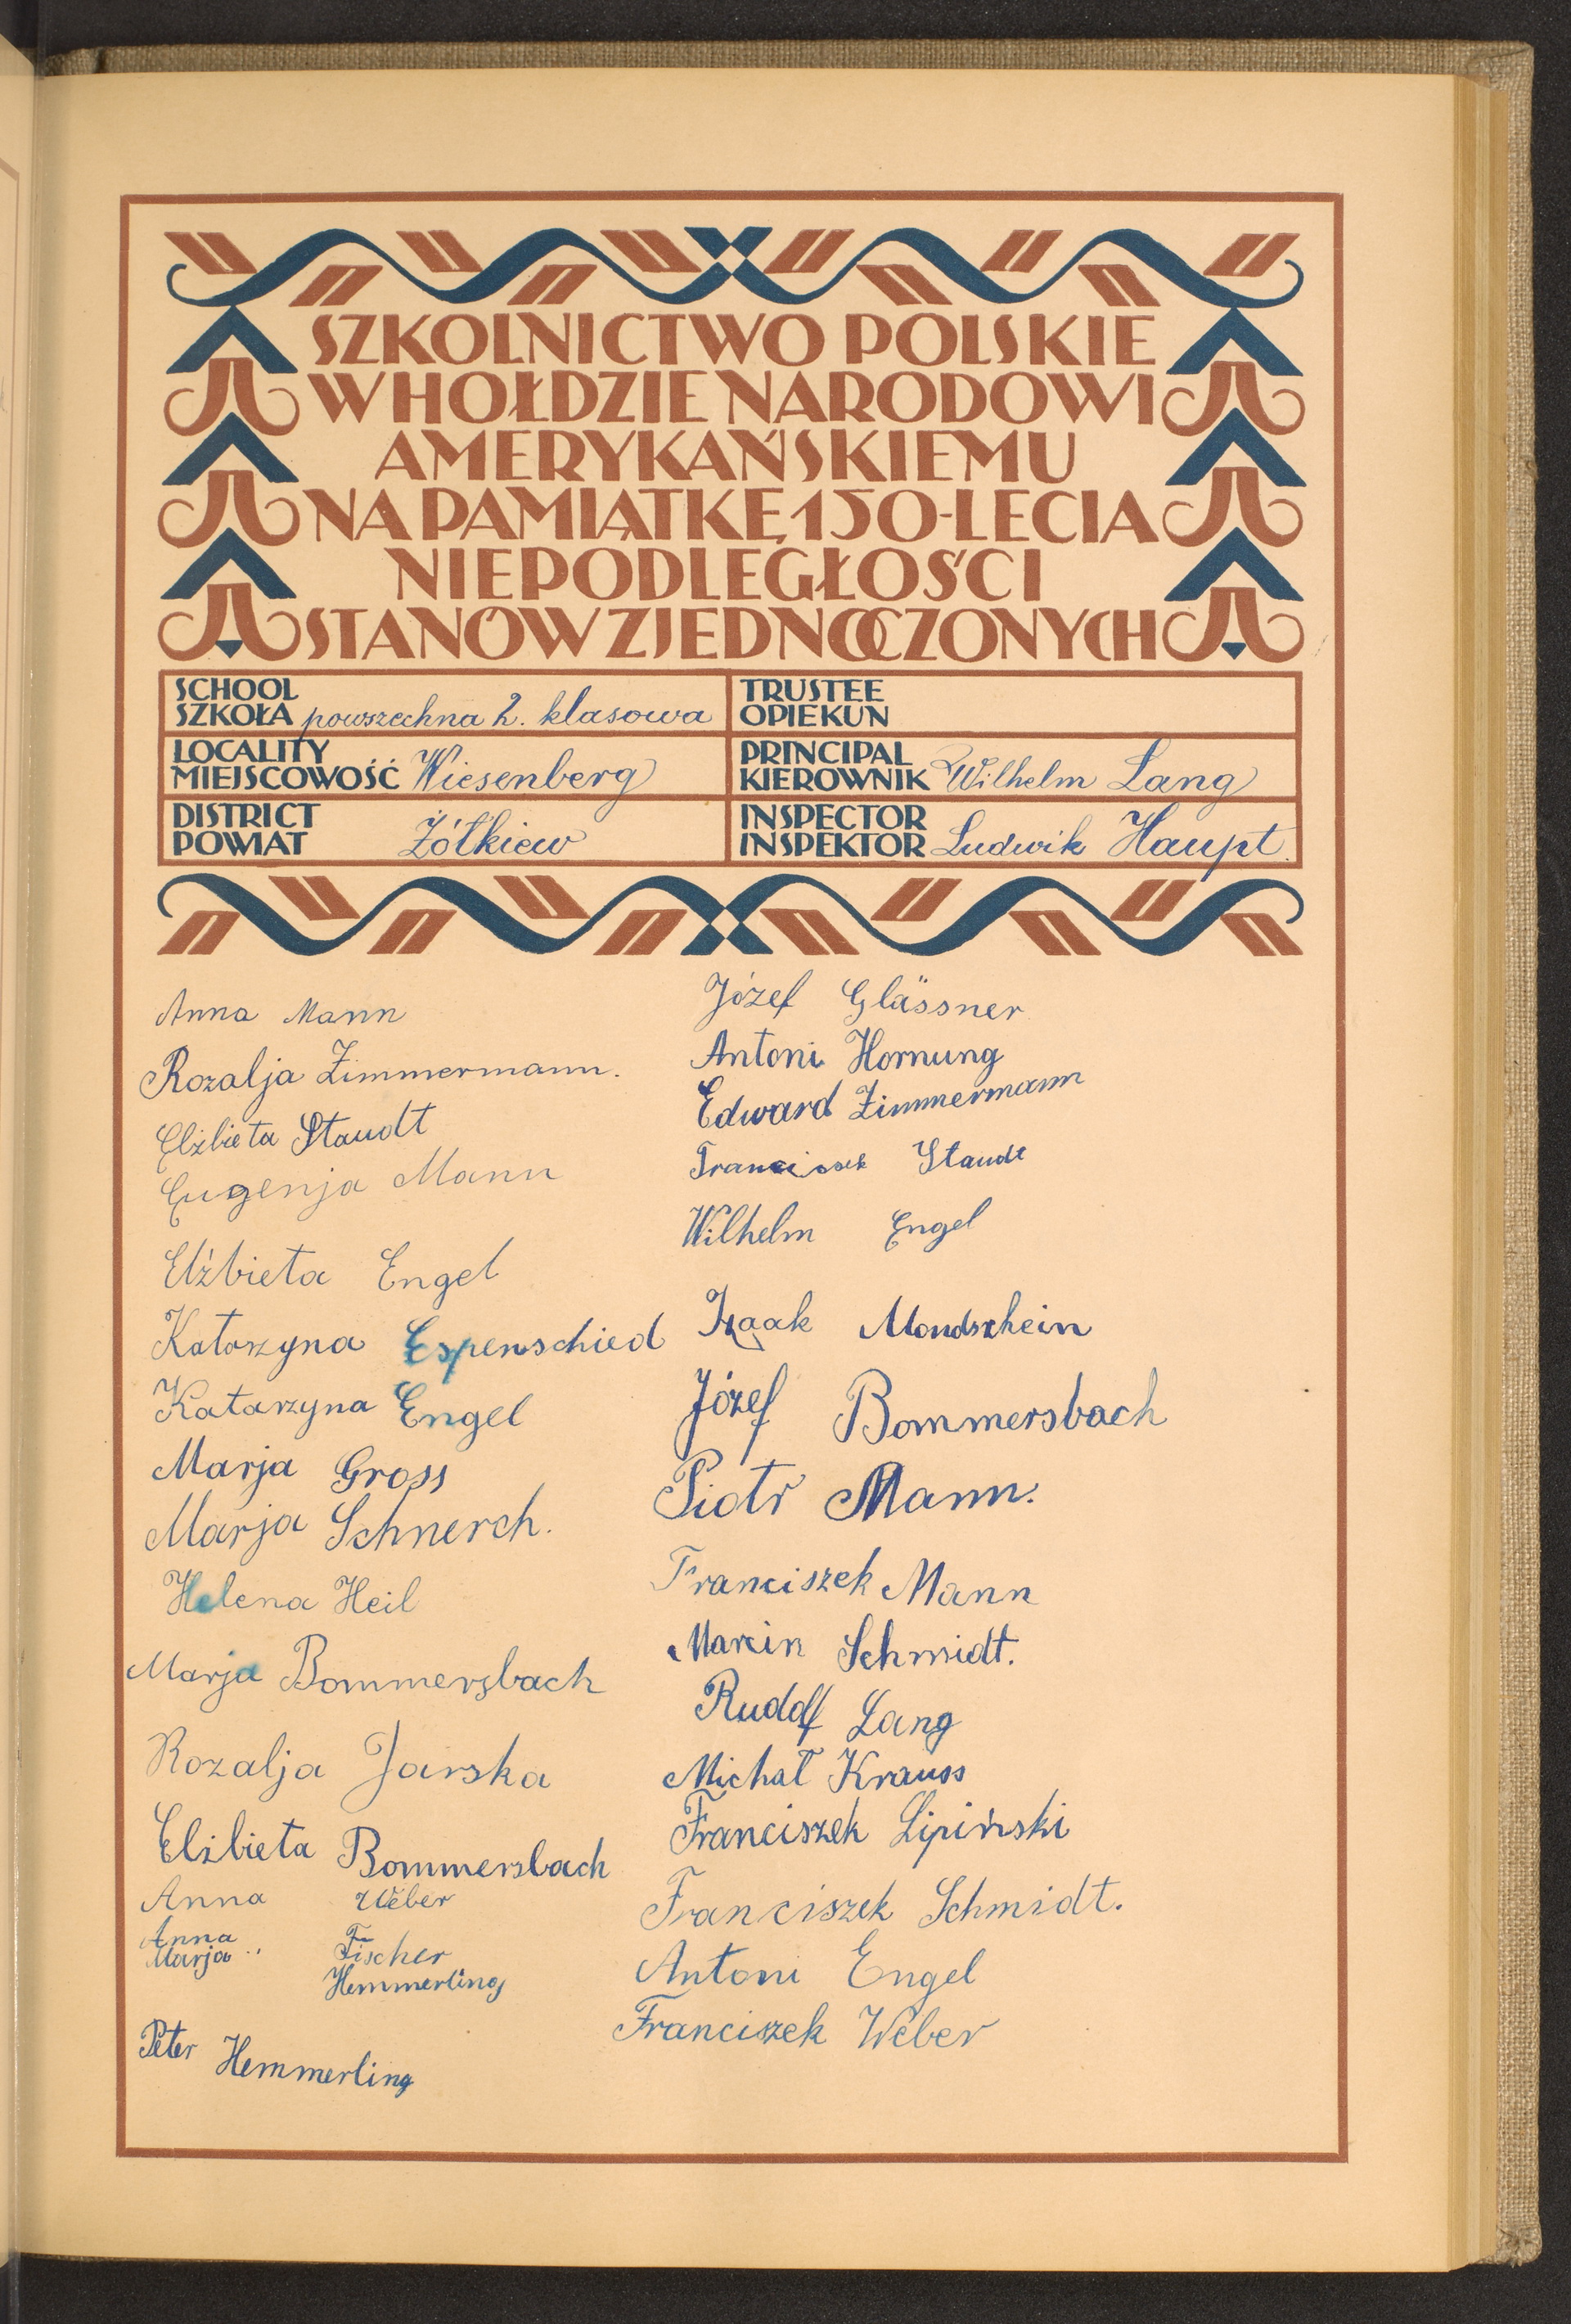 SZKOLNICTWO POLSKIE
W HOŁDZIE NARODOWI
AMERYKAŃSKIEMU
NA PAMIĄTKĘ 150-LECIA
NIEPODLEGŁOŚCI
STANÓW ZJEDNOCZONYCH
SCHOOL
SZKOŁA powszechna 2. klasowa
TRUSTEE
OPIEKUN
LOCALITY
MIEJSCOWOŚĆ Wiesenberg
PRINCIPAL
KIEROWNIK Wilhelm Lang
DISTRICT
POWIAT Żółkiew
INSPECTOR
INSPEKTOR Ludwik Haupt.
Anna Mann
Rozalja Zimmermann.
Elżbieta Staudt
Eugenja Mann
Elżbieta Engel
Katarzyna Espenschied
Katarzyna Engel
Marja Gross
Marja Schnerch.
Helena Heil
Marja Bommersbach
Rozalja Jarska
Elżbieta Bommersbach
Anna Weber
Anna Fischer
Marja Hemmerling
Peter Hemmerling
Józef Glässner
Antoni Hornung
Edward Zimmermann
Franciszek Staudt
Wilhelm Engel
Izaak Mondschein
Józef Bommersbach
Piotr Mann.
Franciszek Mann
Marcin Schmidt.
Rudolf Lang
Michał Krauss
Franciszek Lipiński
Franciszek Schmidt.
Antoni Engel
Franciszek Weber